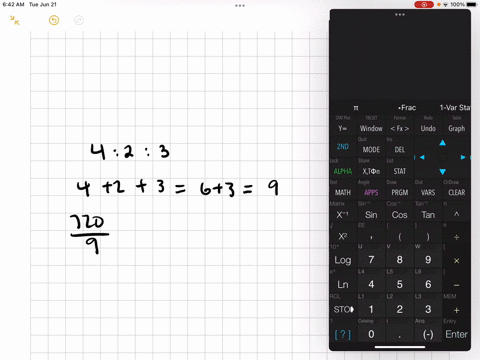 6:42 AM Tue Jun 21
100%
4 : 2 : 3
4 + 2 + 3 = 6 + 3 = 9
720
9
π •Frac 1-Var Sta
Y= Window < Fx > Undo Graph
2ND MODE DEL
ALPHA X,TΘn STAT
MATH APPS PRGM VARS CLEAR
X⁻¹ Sin Cos Tan ^
X² , ( ) ÷
Log 7 8 9 ×
Ln 4 5 6 −
STO 1 2 3 +
[ ? ] 0 . (-) Enter